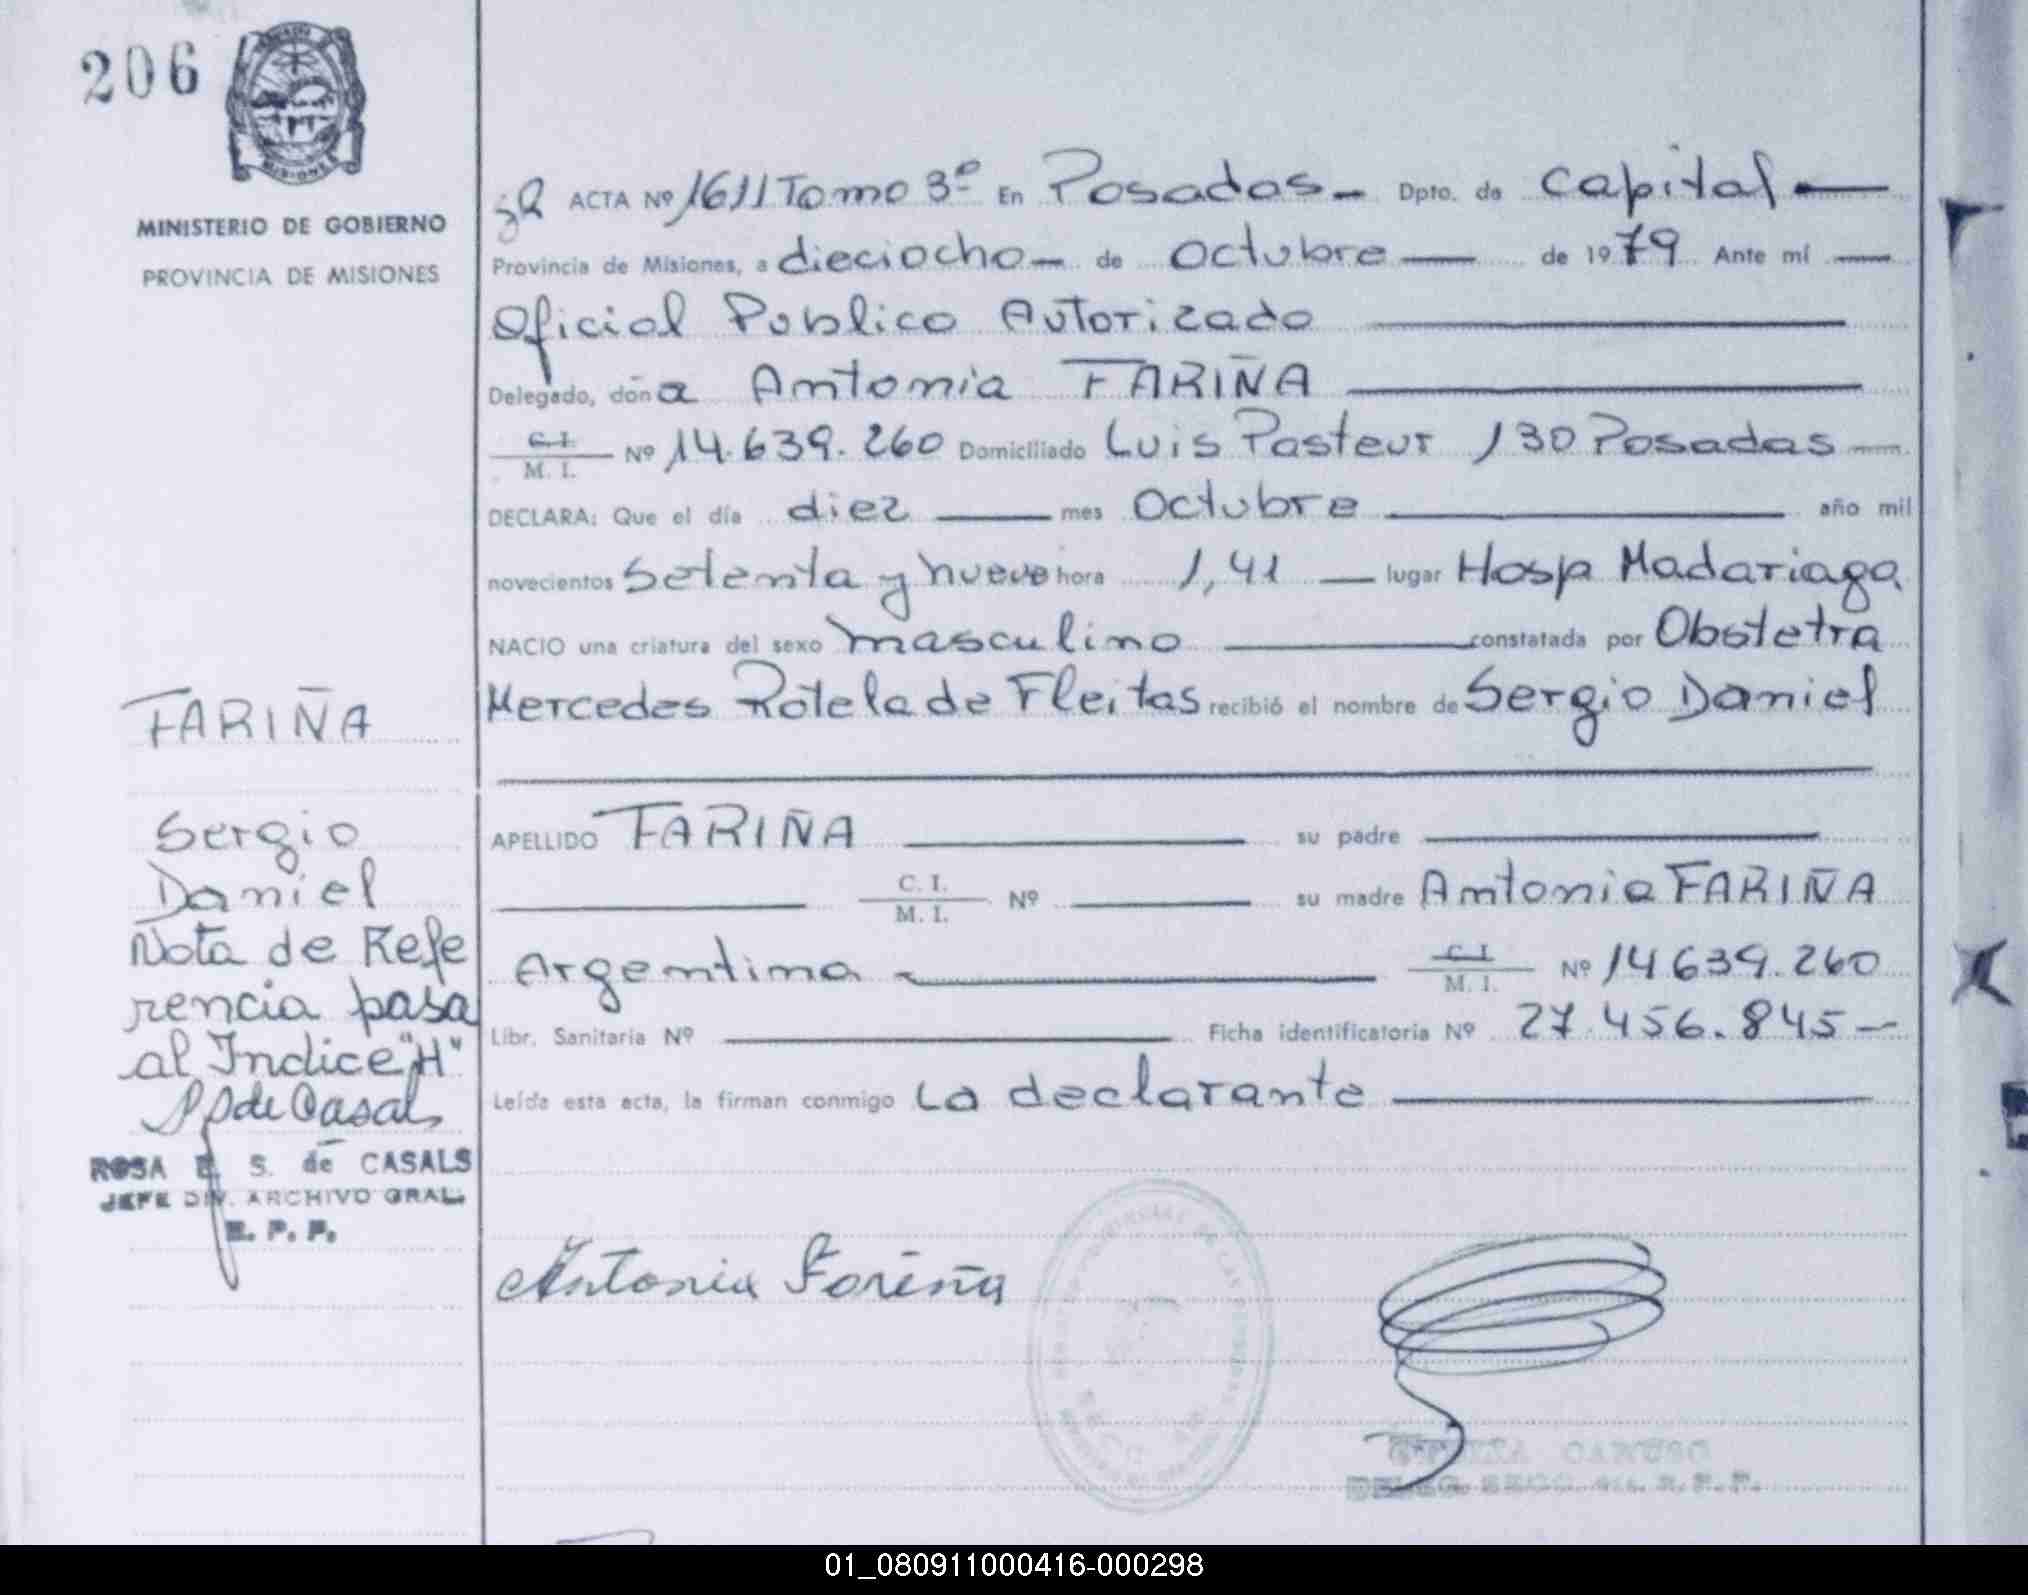 206
MISIONES
MINISTERIO DE GOBIERNO
PROVINCIA DE MISIONES
ACTA Nº 1611 Tomo 3º En Posadas - Dpto. de Capital
Provincia de Misiones, a dieciocho - de Octubre de 1979 Ante mí
Oficial Publico Autorizado
Delegado, doña Antonia FARIÑA
C. I.
M. I. Nº 14.639.260 Domiciliado Luis Pasteur 130 Posadas
DECLARA: Que el día diez mes Octubre año mil
novecientos Setenta y nueve hora 1,41 lugar Hosp Madariaga
NACIO una criatura del sexo masculino constatada por Obstetra
Mercedes Rotela de Fleitas recibió el nombre de Sergio Daniel
APELLIDO FARIÑA su padre
C. I.
M. I. Nº su madre Antonia FARIÑA
Argentina C. I.
M. I. Nº 14639.260
Libr. Sanitaria Nº Ficha identificatoria Nº 27.456.845 -
Leída esta acta, la firman conmigo La declarante
FARIÑA
Sergio
Daniel
Nota de Refe
rencia pasa
al Indice "H"
de Casals
ROSA E. S. de CASALS
JEFE DIV. ARCHIVO GRAL.
R. P. P.
Antonia Fariña
CARUSO
R. P. P.
01_080911000416-000298